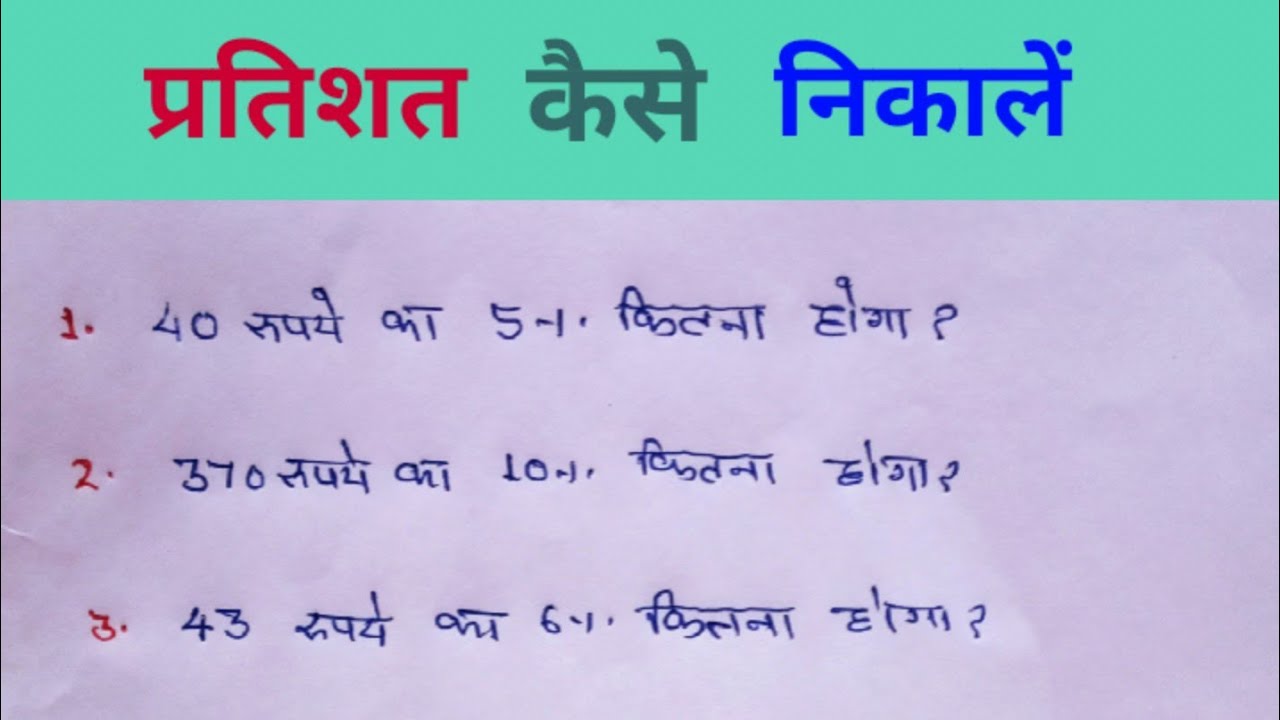 प्रतिशत कैसे निकालें
1. 40 रुपये का 5% कितना होगा ?
2. 370 रुपये का 10% कितना होगा ?
3. 43 रुपये का 6% कितना होगा ?